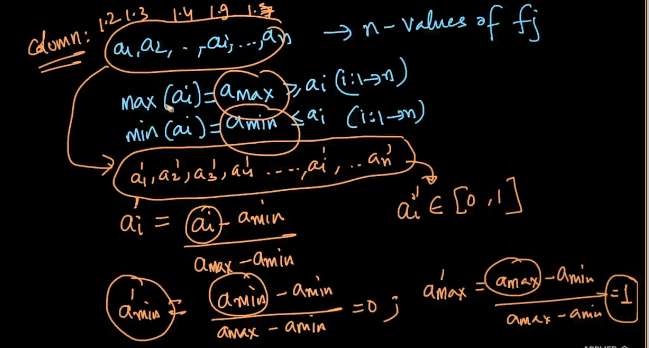 1.2 1.3 1.4 1.9
Column: a₁, a₂, . . , aᵢ, ..., aₙ → n-values of fj
max (aᵢ) = amax ≥ aᵢ (i:1→n)
min (aᵢ) = amin ≤ aᵢ (i:1→n)
a₁', a₂', a₃', a₄' ...., aᵢ', .. aₙ'
aᵢ' ∈ [0, 1]
aᵢ' = (aᵢ - amin) / (amax - amin)
a'min = (amin - amin) / (amax - amin) = 0 ; a'max = (amax - amin) / (amax - amin) = 1